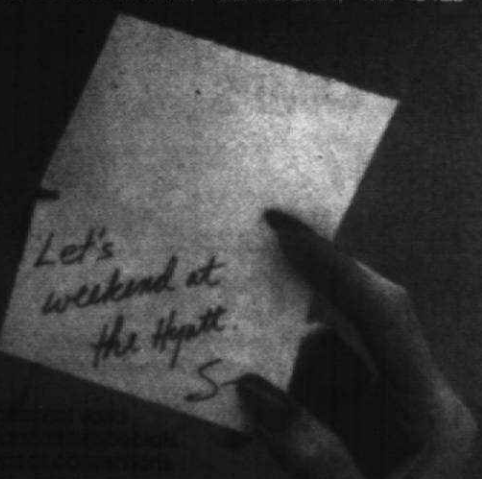 Let's
weekend at
the Hyatt.
S